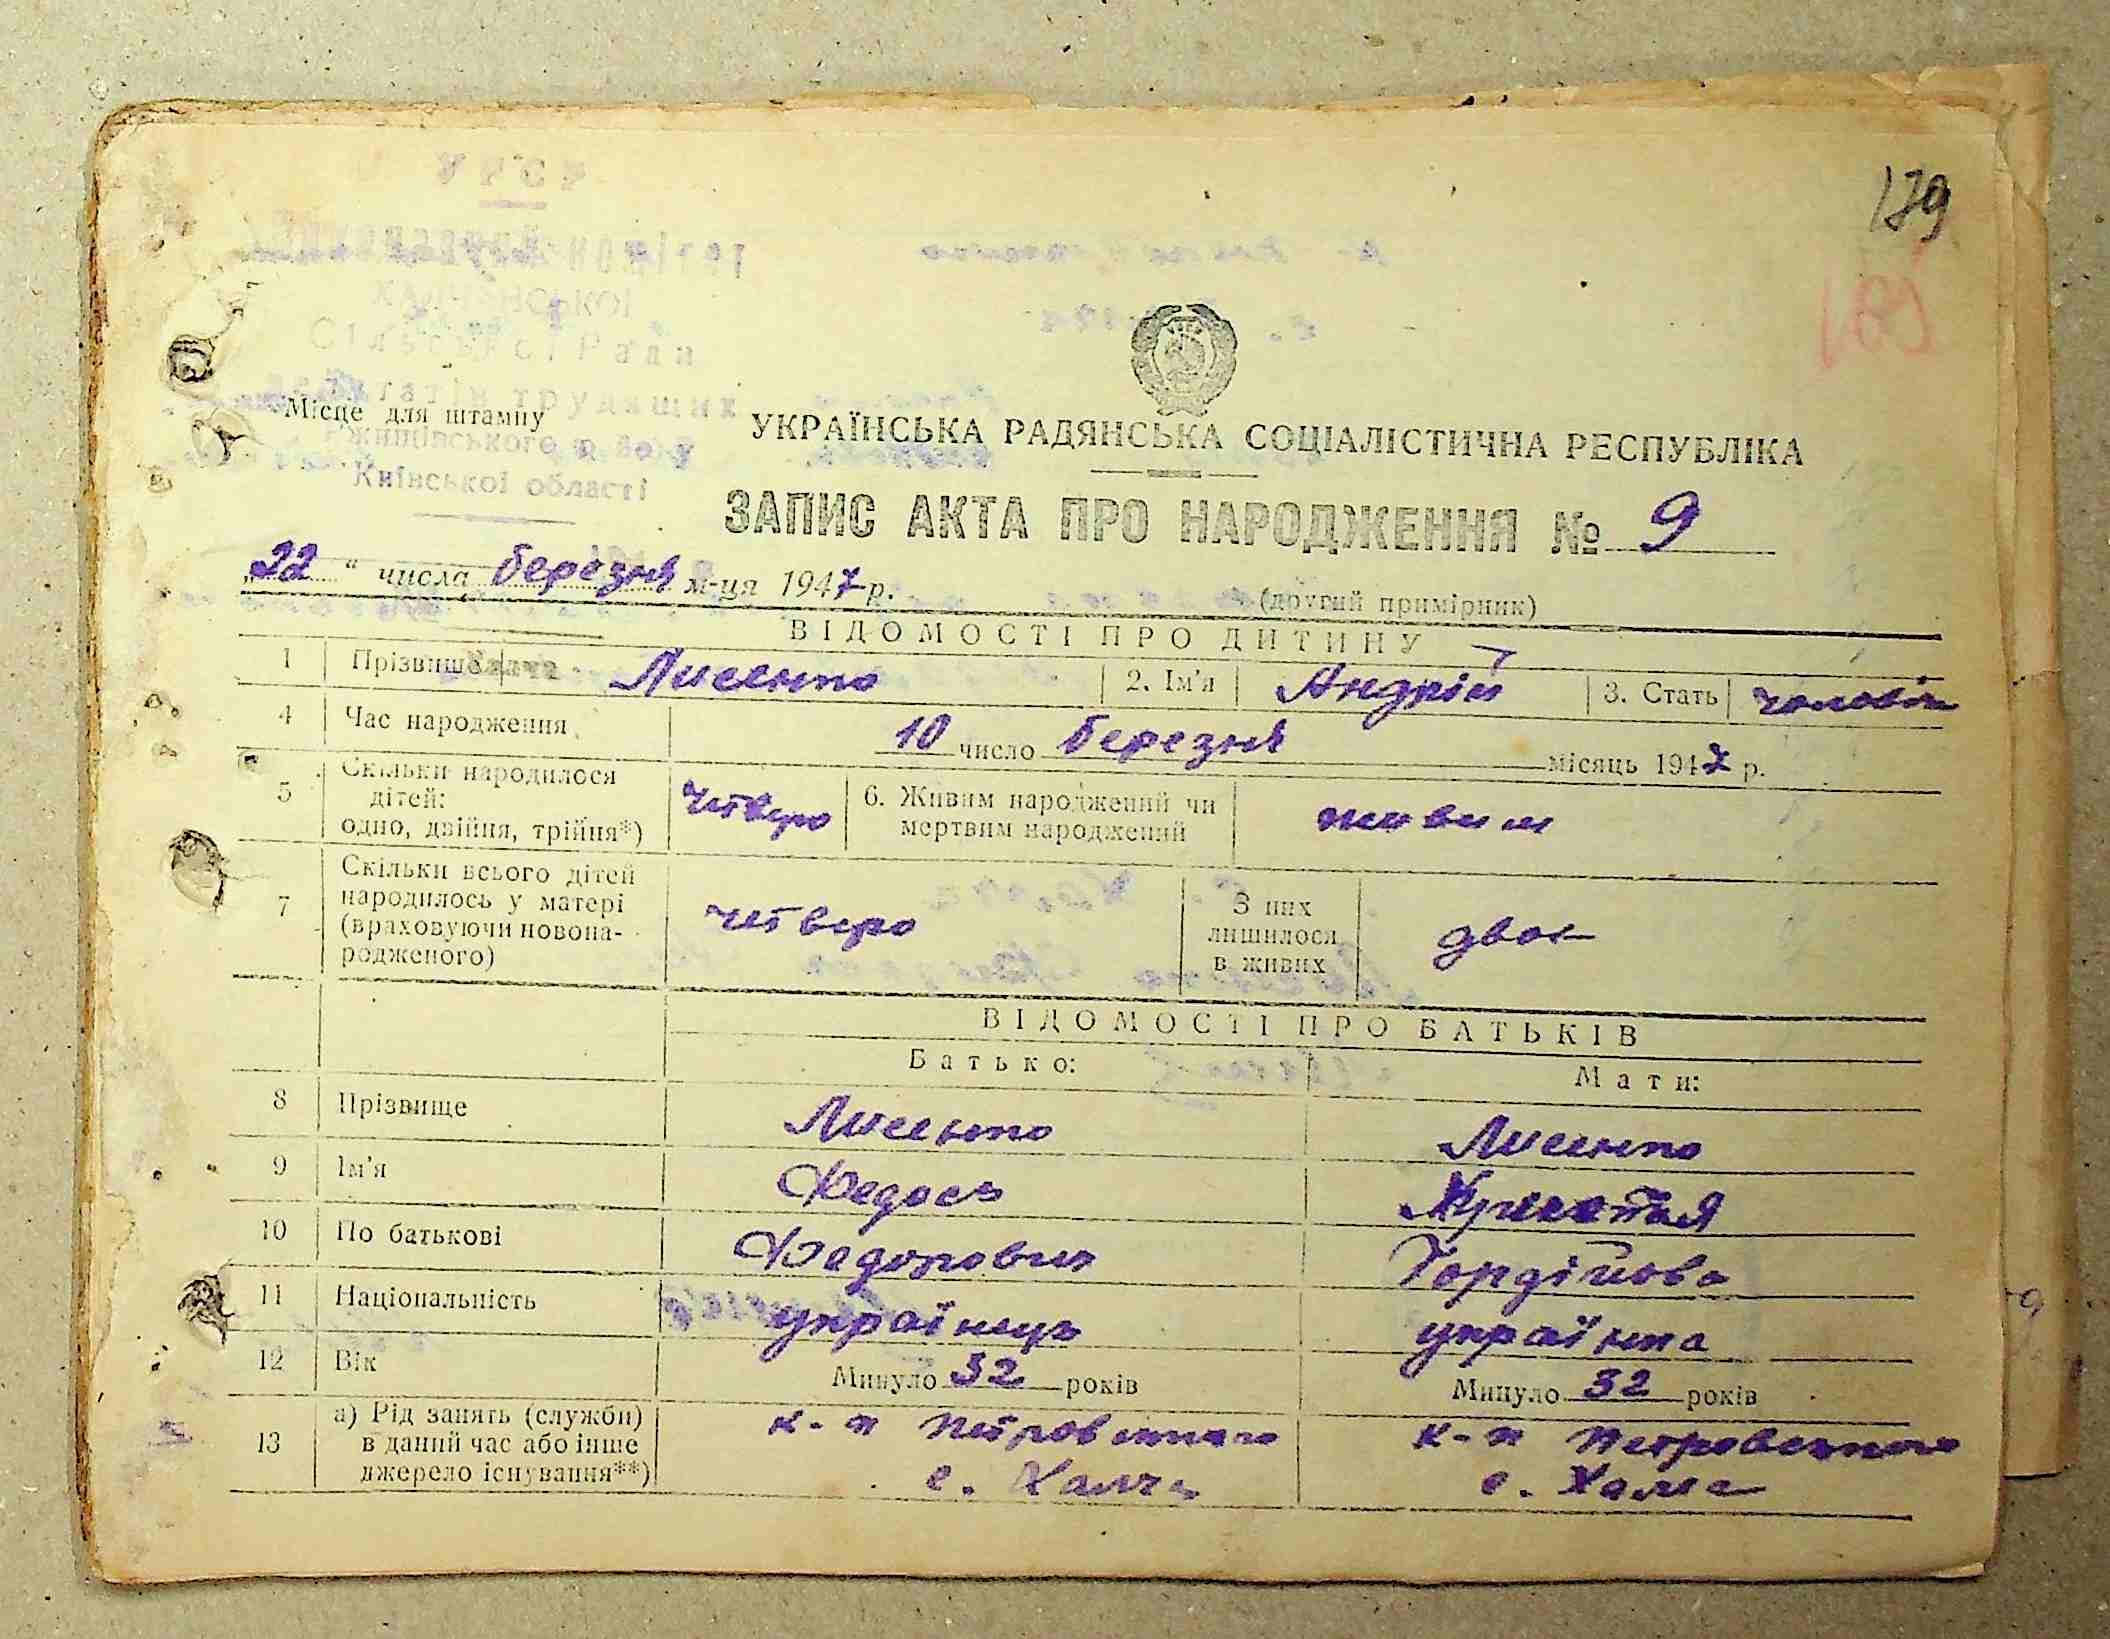 179
УРСР
ХАЛЧАНСЬКОЇ
Сільської Ради
депутатів трудящих
Ржищівського р-ну
Київської області
Місце для штампу
УКРАЇНСЬКА РАДЯНСЬКА СОЦІАЛІСТИЧНА РЕСПУБЛІКА
ЗАПИС АКТА ПРО НАРОДЖЕННЯ № 9
„22" числа березня м-ця 1947 р.
(другий примірник)
ВІДОМОСТІ ПРО ДИТИНУ
1 Прізвище Лисенко 2. Ім'я Андрій 3. Стать чоловіч
4 Час народження 10 число березня місяць 1947 р.
5 Скільки народилося дітей: одно, двійня, трійня*) четверо 6. Живим народжений чи мертвим народжений живим
7 Скільки всього дітей народилось у матері (враховуючи новонародженого) четверо З них лишилося в живих двоє
ВІДОМОСТІ ПРО БАТЬКІВ
Батько: Мати:
8 Прізвище Лисенко Лисенко
9 Ім'я Федось
10 По батькові Федорович Гордійовна
11 Національність українець українка
12 Вік Минуло 32 років Минуло 32 років
13 а) Рід занять (служби) в даний час або інше джерело існування**) к-п Петровського к-п Петровського
с. Халча с. Халча